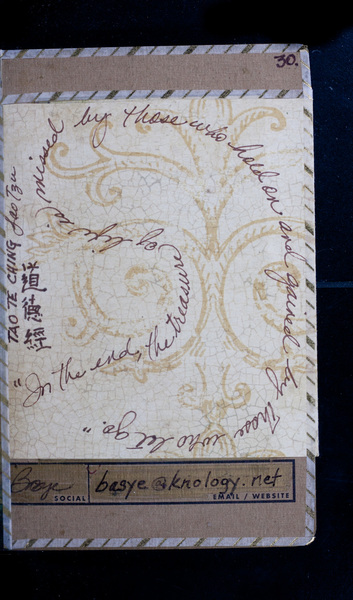 30.
"In the end, the treasure
of life is missed by those who hold on and gained by those who let go."
TAO TE CHING Lao Tzu
道德經
Basye
SOCIAL
basye@knology.net
EMAIL / WEBSITE